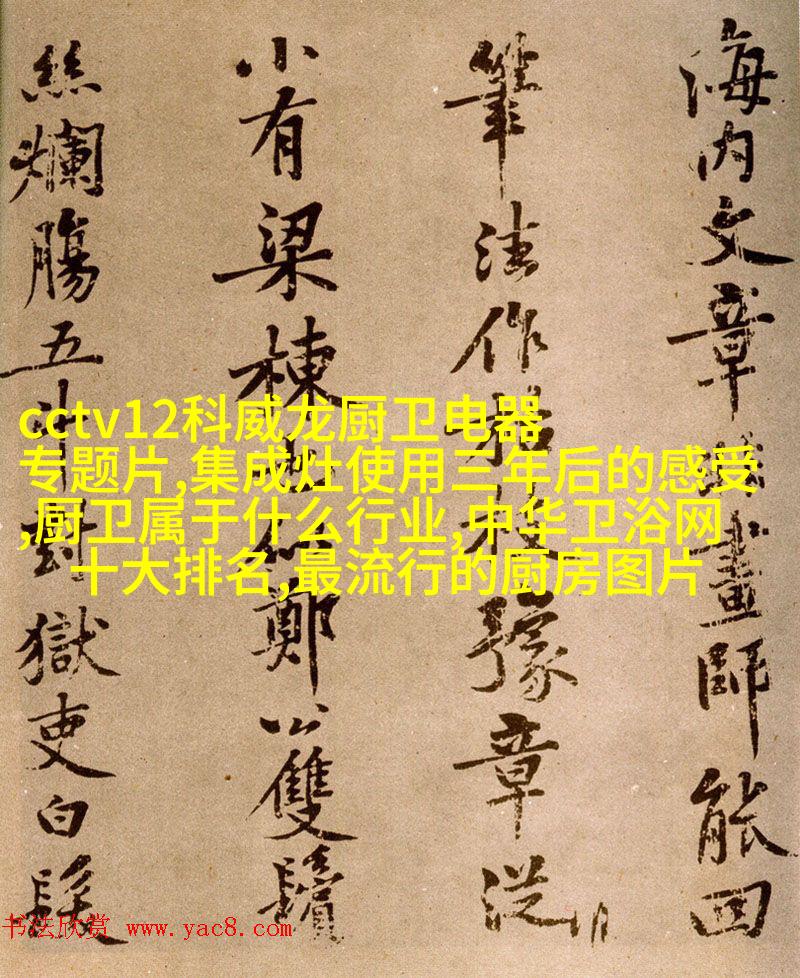 海内文章非畫師能回
筆法作枯枝豫章從
小有梁棟也似鄭公雙鬢
絲爛腸五斗對獄吏白髮
cctv12科威龙厨卫电器
专题片,集成灶使用三年后的感受
,厨卫属于什么行业,中华卫浴网
十大排名,最流行的厨房图片
书法欣赏 www.yac8.com